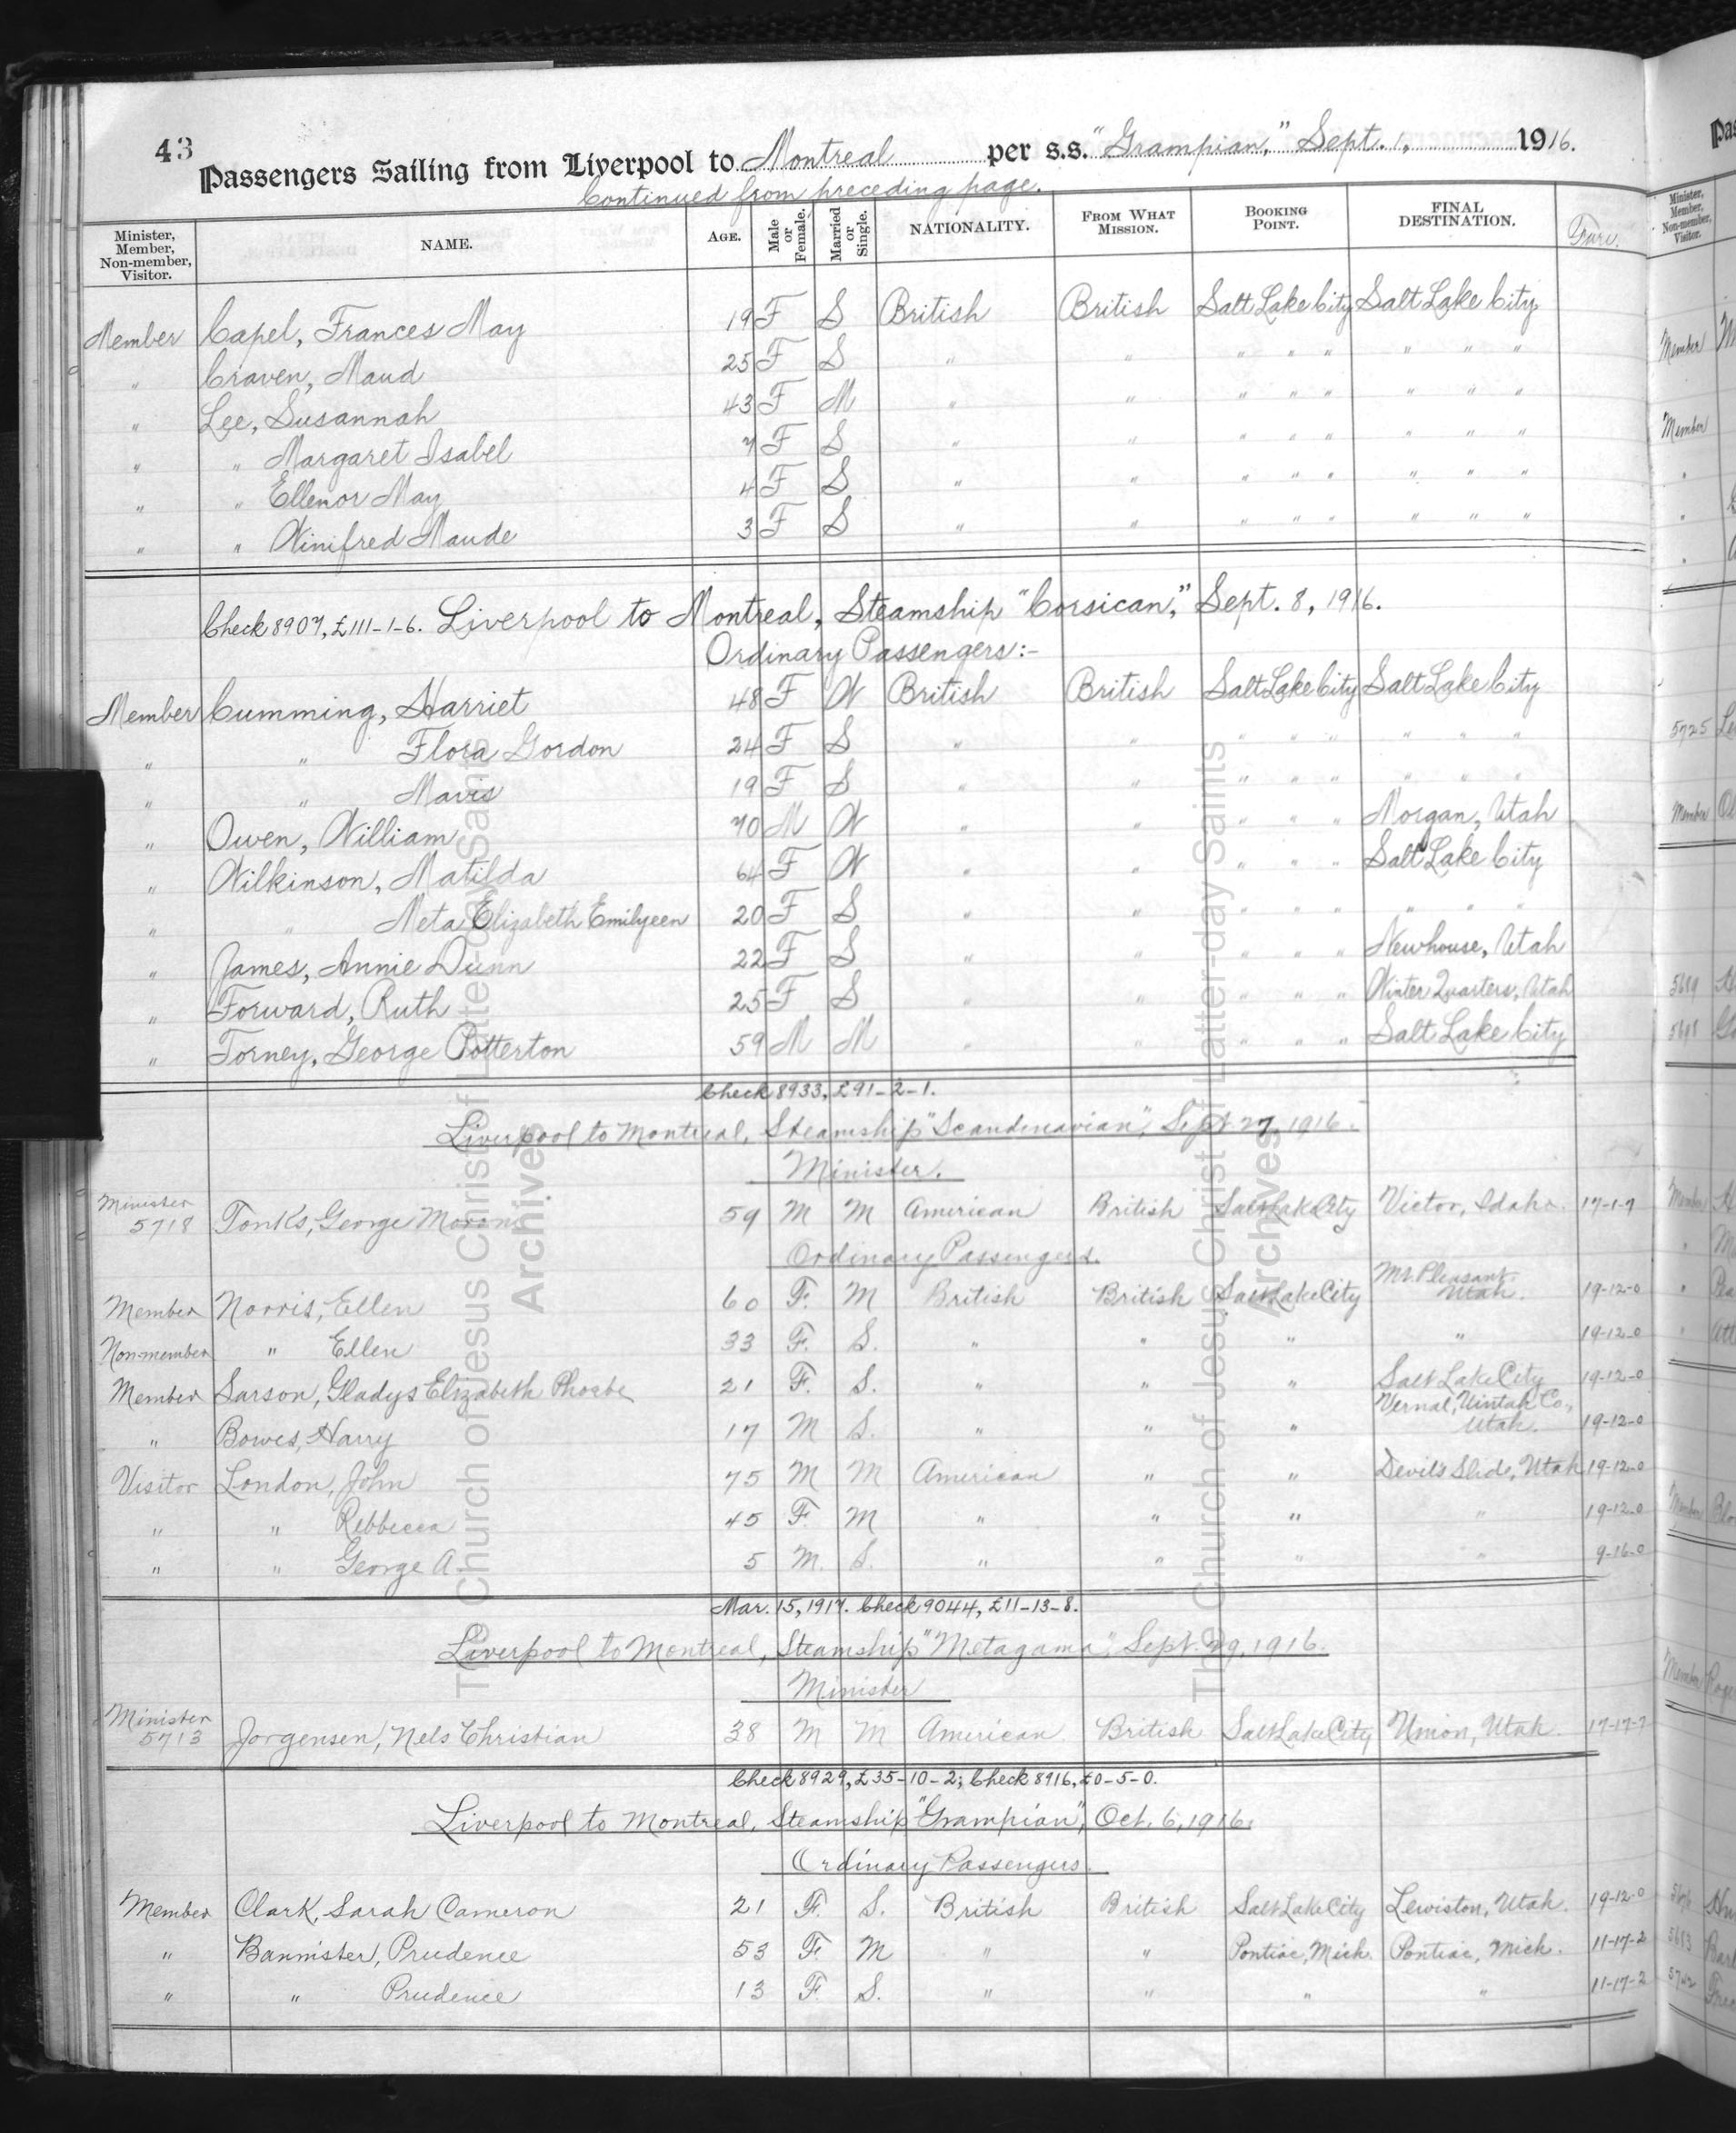 43
Passengers Sailing from Liverpool to Montreal per s.s. "Grampian," Sept. 1, 1916.
Continued from preceding page.
Minister, Member, Non-member, Visitor. NAME. AGE. Male or Female. Married or Single. NATIONALITY. FROM WHAT MISSION. BOOKING POINT. FINAL DESTINATION. Fare.
Member Capel, Frances May 19 F S British British Salt Lake City Salt Lake City
" Craven, Maud 25 F S " " " " " " " "
" Lee, Susannah 43 F M " " " " " " " "
" " Margaret Isabel 7 F S " " " " " " " "
" " Ellenor May 4 F S " " " " " " " "
" " Winifred Maude 3 F S " " " " " " " "
Check 8907, £111-1-6. Liverpool to Montreal, Steamship "Corsican," Sept. 8, 1916.
Ordinary Passengers:-
Member Cumming, Harriet 48 F W British British Salt Lake City Salt Lake City
" " Flora Gordon 24 F S " " " " " " " "
" " Mavis 19 F S " " " " " " " "
" Owen, William 70 M W " " " " " Morgan, Utah
" Wilkinson, Matilda 64 F W " " " " " Salt Lake City
" " Meta Elizabeth Emilyeen 20 F S " " " " " " " "
" James, Annie Dunn 22 F S " " " " " Newhouse, Utah
" Forward, Ruth 25 F S " " " " " Winter Quarters, Utah
" Torney, George Potterton 59 M M " " " " " Salt Lake City
Check 8933, £91-2-1.
Liverpool to Montreal, Steamship "Scandinavian", Sept. 27, 1916.
Minister.
Minister 5718 Tonks, George Moroni 59 M M American British Salt Lake City Victor, Idaho. 17-1-7
Ordinary Passengers.
Member Norris, Ellen 60 F. M British British Salt Lake City Mt. Pleasant Utah. 19-12-0
Non-member " Ellen 33 F. S. " " " " 19-12-0
Member Sarson, Gladys Elizabeth Phoebe 21 F. S. " " " Salt Lake City 19-12-0
" Bowes, Harry 17 M S. " " " Vernal, Uintah Co., Utah. 19-12-0
Visitor London, John 75 M M American " " Devil's Slide, Utah 19-12-0
" " Rebbecca 45 F. M " " " " 19-12-0
" " George A. 5 M. S. " " " " 9-16-0
Mar. 15, 1917. Check 9044, £11-13-8.
Liverpool to Montreal, Steamship "Metagama", Sept. 29, 1916.
Minister
Minister 5713 Jorgensen, Nels Christian 38 M M American British Salt Lake City Union, Utah. 17-17-7
Check 8929, £35-10-2; Check 8916, £0-5-0.
Liverpool to Montreal, Steamship "Grampian", Oct. 6, 1916.
Ordinary Passengers
Member Clark, Sarah Cameron 21 F. S. British British Salt Lake City Lewiston, Utah. 19-12-0
" Bannister, Prudence 53 F M " " Pontiac, Mich. Pontiac, Mich. 11-17-2
" " Prudence 13 F. S. " " " " 11-17-2
The Church of Jesus Christ of Latter-day Saints
Archives
The Church of Jesus Christ of Latter-day Saints
Archives
Minister, Member, Non-member, Visitor.
Member
Member
5725
Member
Member
Member
Member